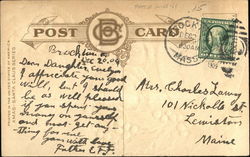 POST CARD
BROCKTON
MASS.
Brockton
Dec 20. 09
Dear Daughter
I appreciate your good
will, but I should
be as well pleased
if you spent your
money on yourself
and not get any
thing for me
your with love
Father
Mrs. Charles
101 Nichols St
Lewiston
Maine